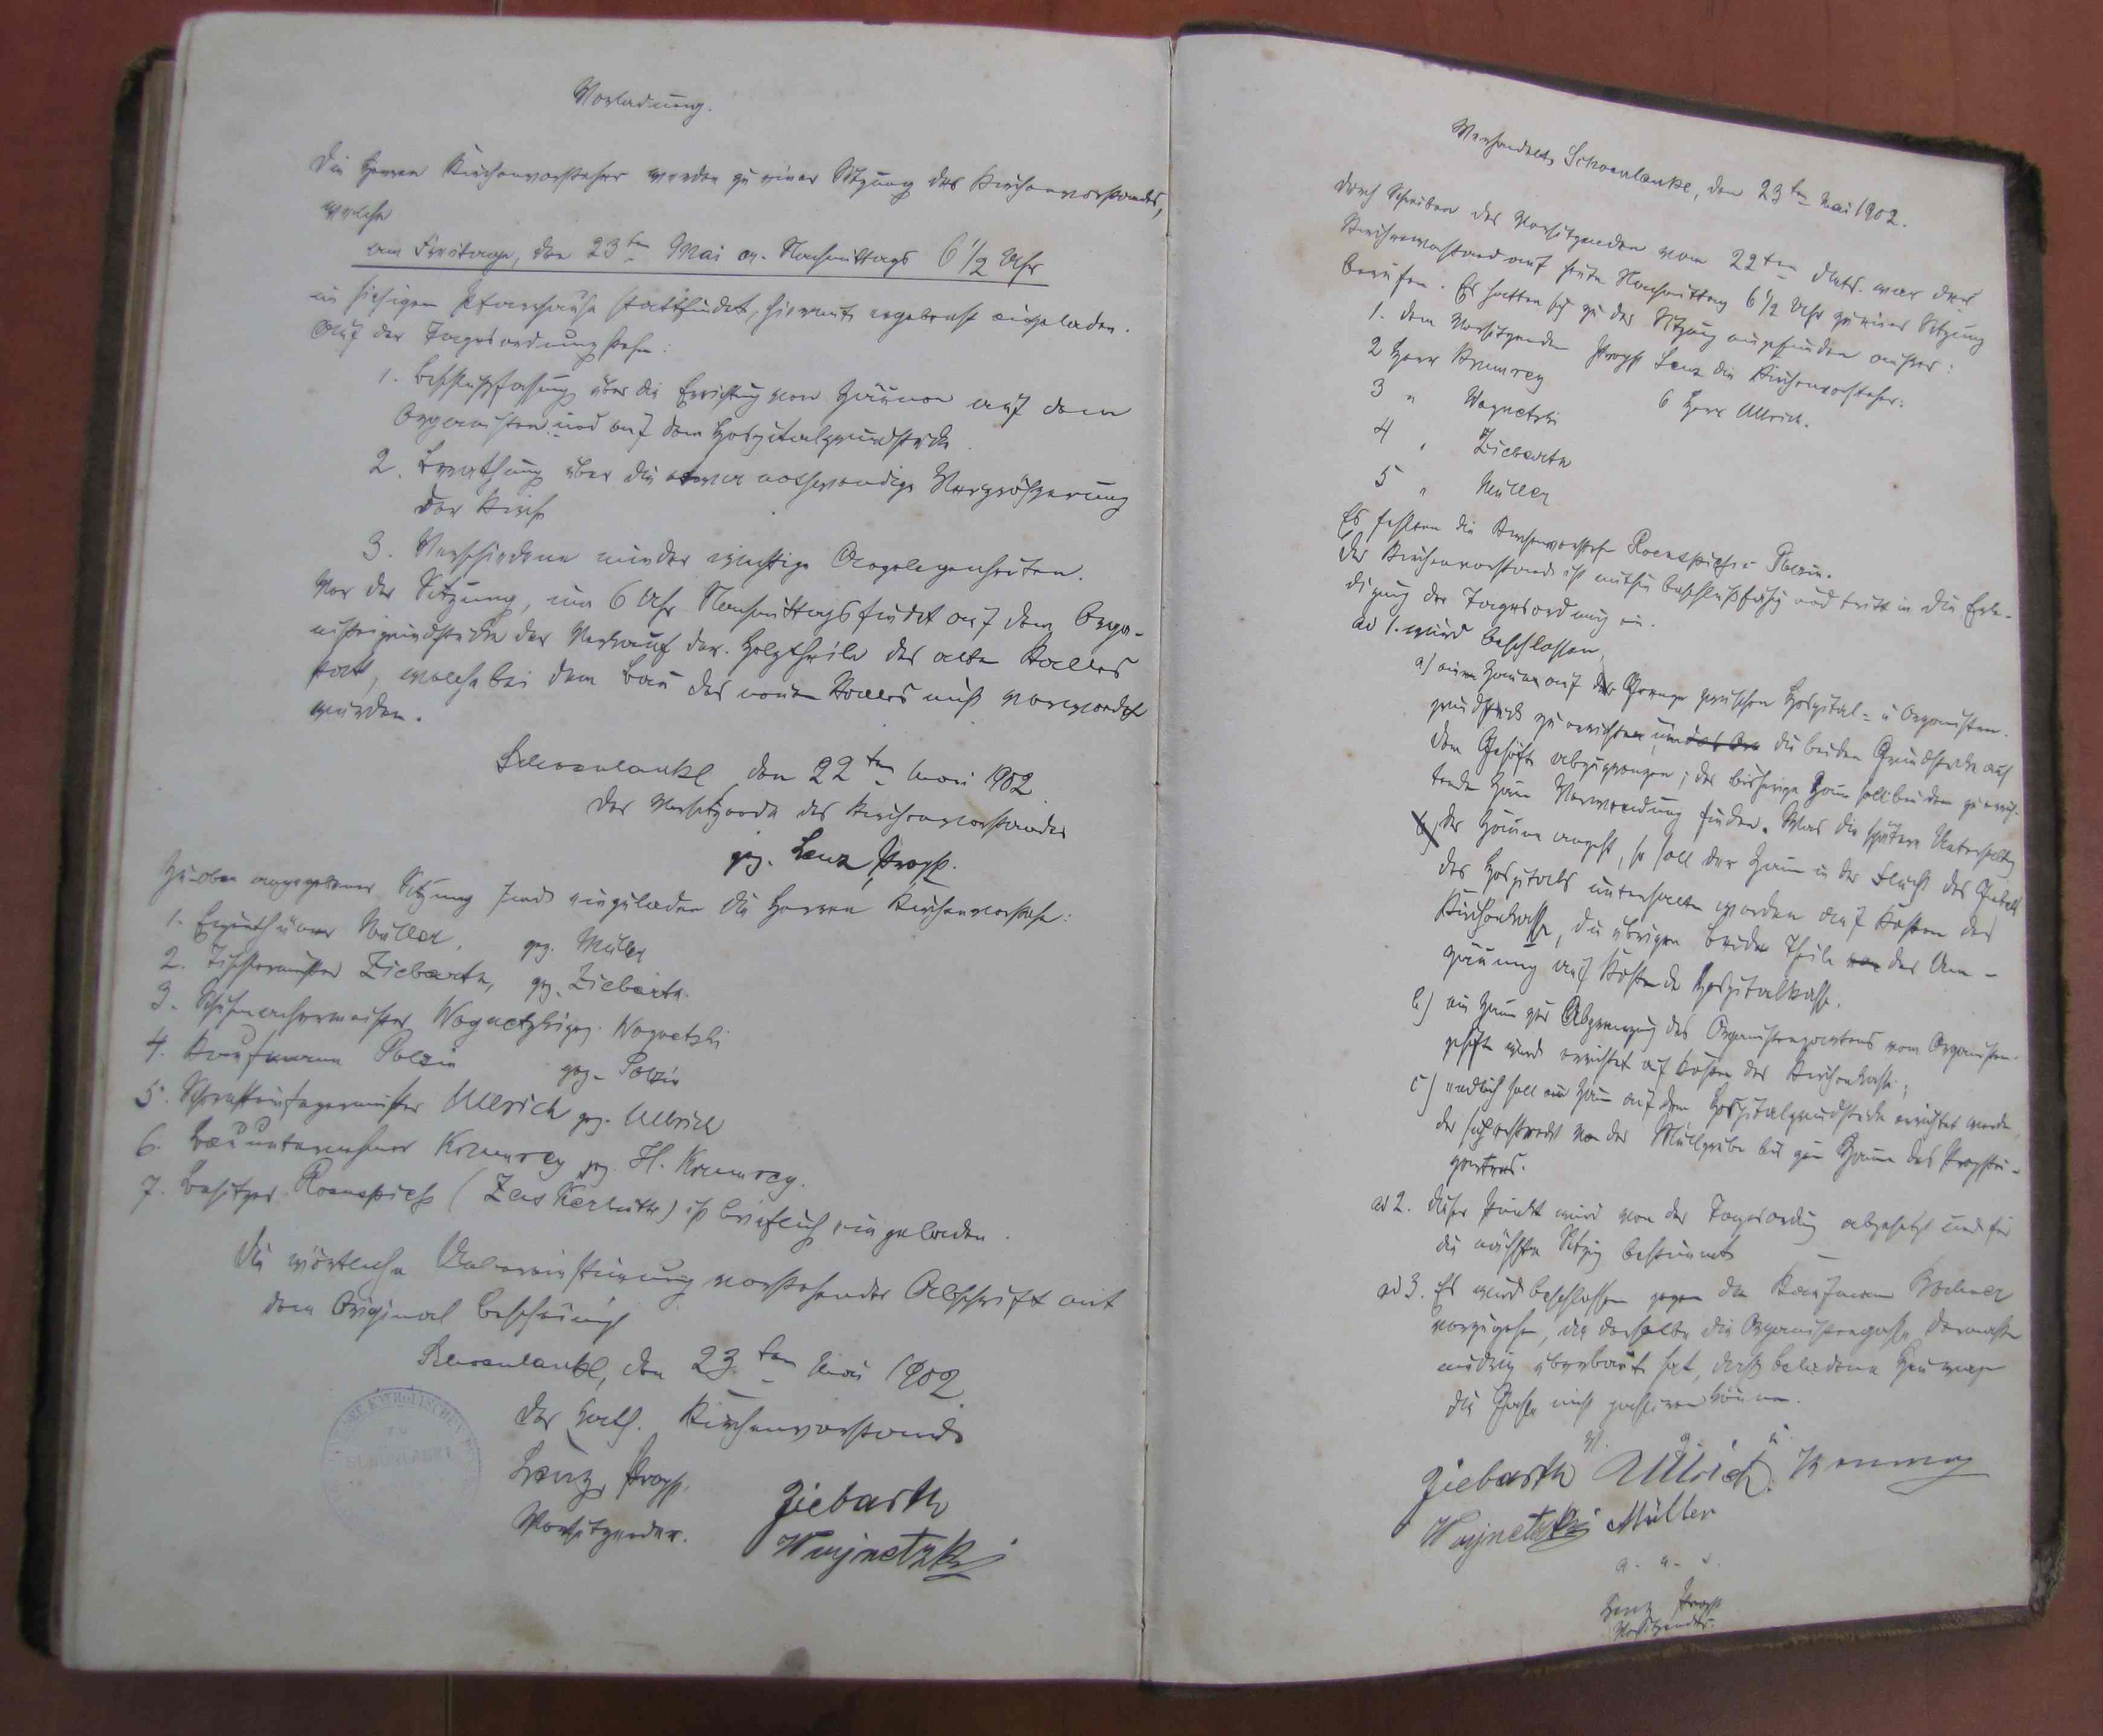 Vorladung.
Die Herren Kirchenvorsteher werden zu einer Sitzung des Kirchenvorstandes,
welche
am Freitage, den 23ten Mai cr. Nachmittags 6 1/2 Uhr
im hiesigen Pfarrhause stattfindet, hiermit ergebenst eingeladen.
Auf der Tagesordnung stehen:
1. Beschlußfassung über die Errichtung von Zäunen auf dem
Organisten- und auf dem Hospitalgrundstücke.
2. Berathung über die etwa nothwendige Vergrößerung
der Kirche
3. Verschiedene minder wichtige Angelegenheiten.
Vor der Sitzung, um 6 Uhr Nachmittags findet auf dem Orga-
nisteigrundstücke der Verkauf der Holztheile des alten Stalles
statt, welche bei dem Bau des neuen Stalles nicht verwendet
wurden.
Schoenlanke, den 22ten Mai 1902.
Der Vorsitzende des Kirchenvorstandes
gez. Lenz, Propst.
Zu oben angegebener Sitzung sind eingeladen die Herren Kirchenvorsteher:
1. Eigenthümer Müller, gez. Müller
2. Tischlermeister Ziebarth, gez. Ziebarth.
3. Schuhmachermeister Wognetzki gez. Wognetzki
4. Kaufmann Polzin gez. Polzin
5. Schornsteinfegermeister Ullrich gez. Ullrich
6. Bauunternehmer Krumrey gez. H. Krumrey.
7. Besitzer Roenspieß (Zaskerhütte) ist brieflich eingeladen.
Die wörtliche Uebereinstimmung vorstehender Abschrift mit
dem Original bescheinigt
Schoenlanke, den 23.ten Mai 1902.
Der kath. Kirchenvorstand
Lenz, Propst.
Vorsitzender.
Ziebarth
Wojnetzki
KATHOLISCHEN
SCHÖNLANKE
Verhandelt, Schoenlanke, den 23ten Mai 1902.
Durch Schreiben des Vorsitzenden vom 22ten dMts. war der
Kirchenvorstand auf heute Nachmittag 6 1/2 Uhr zu einer Sitzung
berufen. Es hatten sich zu der Sitzung eingefunden außer:
1. dem Vorsitzenden Propst Lenz die Kirchenvorsteher:
2 Herr Krumrey
6 Herr Ullrich.
3 " Wognetzki
4 " Ziebarth
5 " Müller
Es fehlten die Kirchenvorsteher Roenspieß u. Polzin.
Der Kirchenvorstand ist mithin beschlußfähig und tritt in die Erle-
digung der Tagesordnung ein.
ad 1. wird beschlossen,
a) einen Zaun auf der Grenze zwischen Hospital- u Organisten-
grundstück zu errichten, um die beiden Grundstücke auf
dem Gehöfte abzugrenzen; der bisherige Zaun soll bei dem zu errich-
tenden Zaun Verwendung finden. Was die spätere Unterhaltung
der Zäune angeht, so soll der Zaun in der Flucht des Giebels
des Hospitals unterhalten werden auf Kosten der
Kirchenkasse, die übrigen beiden Theile der Um-
zäunung auf Kosten der Hospitalkasse.
b) ein Zaun zur Abgrenzung des Organistengartens vom Organisten-
gehöfte wird errichtet auf Kosten der Kirchenkasse;
c) endlich soll ein Zaun auf dem Hospitalgrundstücke errichtet werden,
der sich erstreckt von der Müllgrube bis zum Zaune des Propstei-
gartens.
ad 2. Dieser Punkt wird von der Tagesordnung abgesetzt und für
die nächste Sitzung bestimmt
ad 3. Es wird beschlossen gegen den Kaufmann
vorzugehen, da derselbe die Organistengasse dermassen
niedrig überbaut hat, daß beladene Heuwagen
die Gasse nicht passieren können.
V. g. u.
Ziebarth Ullrich. Krumrey
Wojnetzki Müller
a. u. s.
Lenz Propst
Vorsitzender.